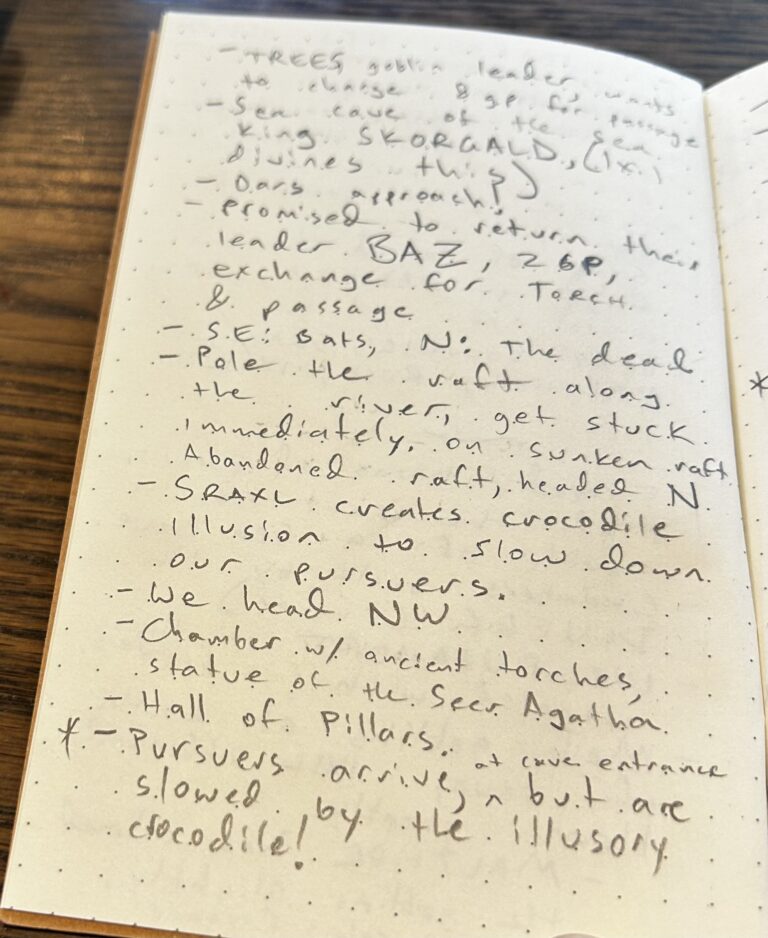 - TREES, goblin leader, wants
to charge 8 gp for passage
- Sea cave of the sea
king SKORGALD, (Ix.
divines this)
- Oars approach!
- promised to return their
leader BAZ, 2 GP,
exchange for TORCH
& passage
- S.E: Bats, N: The dead
- Pole the raft along
the river, get stuck
immediately, on sunken raft
Abandoned raft, headed N
- SRAXL creates crocodile
illusion to slow down
our pursuers.
- We head NW
- Chamber w/ ancient torches,
statue of the Seer Agatha
- Hall of Pillars.
* - Pursuers arrive, at cave entrance but are
slowed by the illusory
crocodile!
*